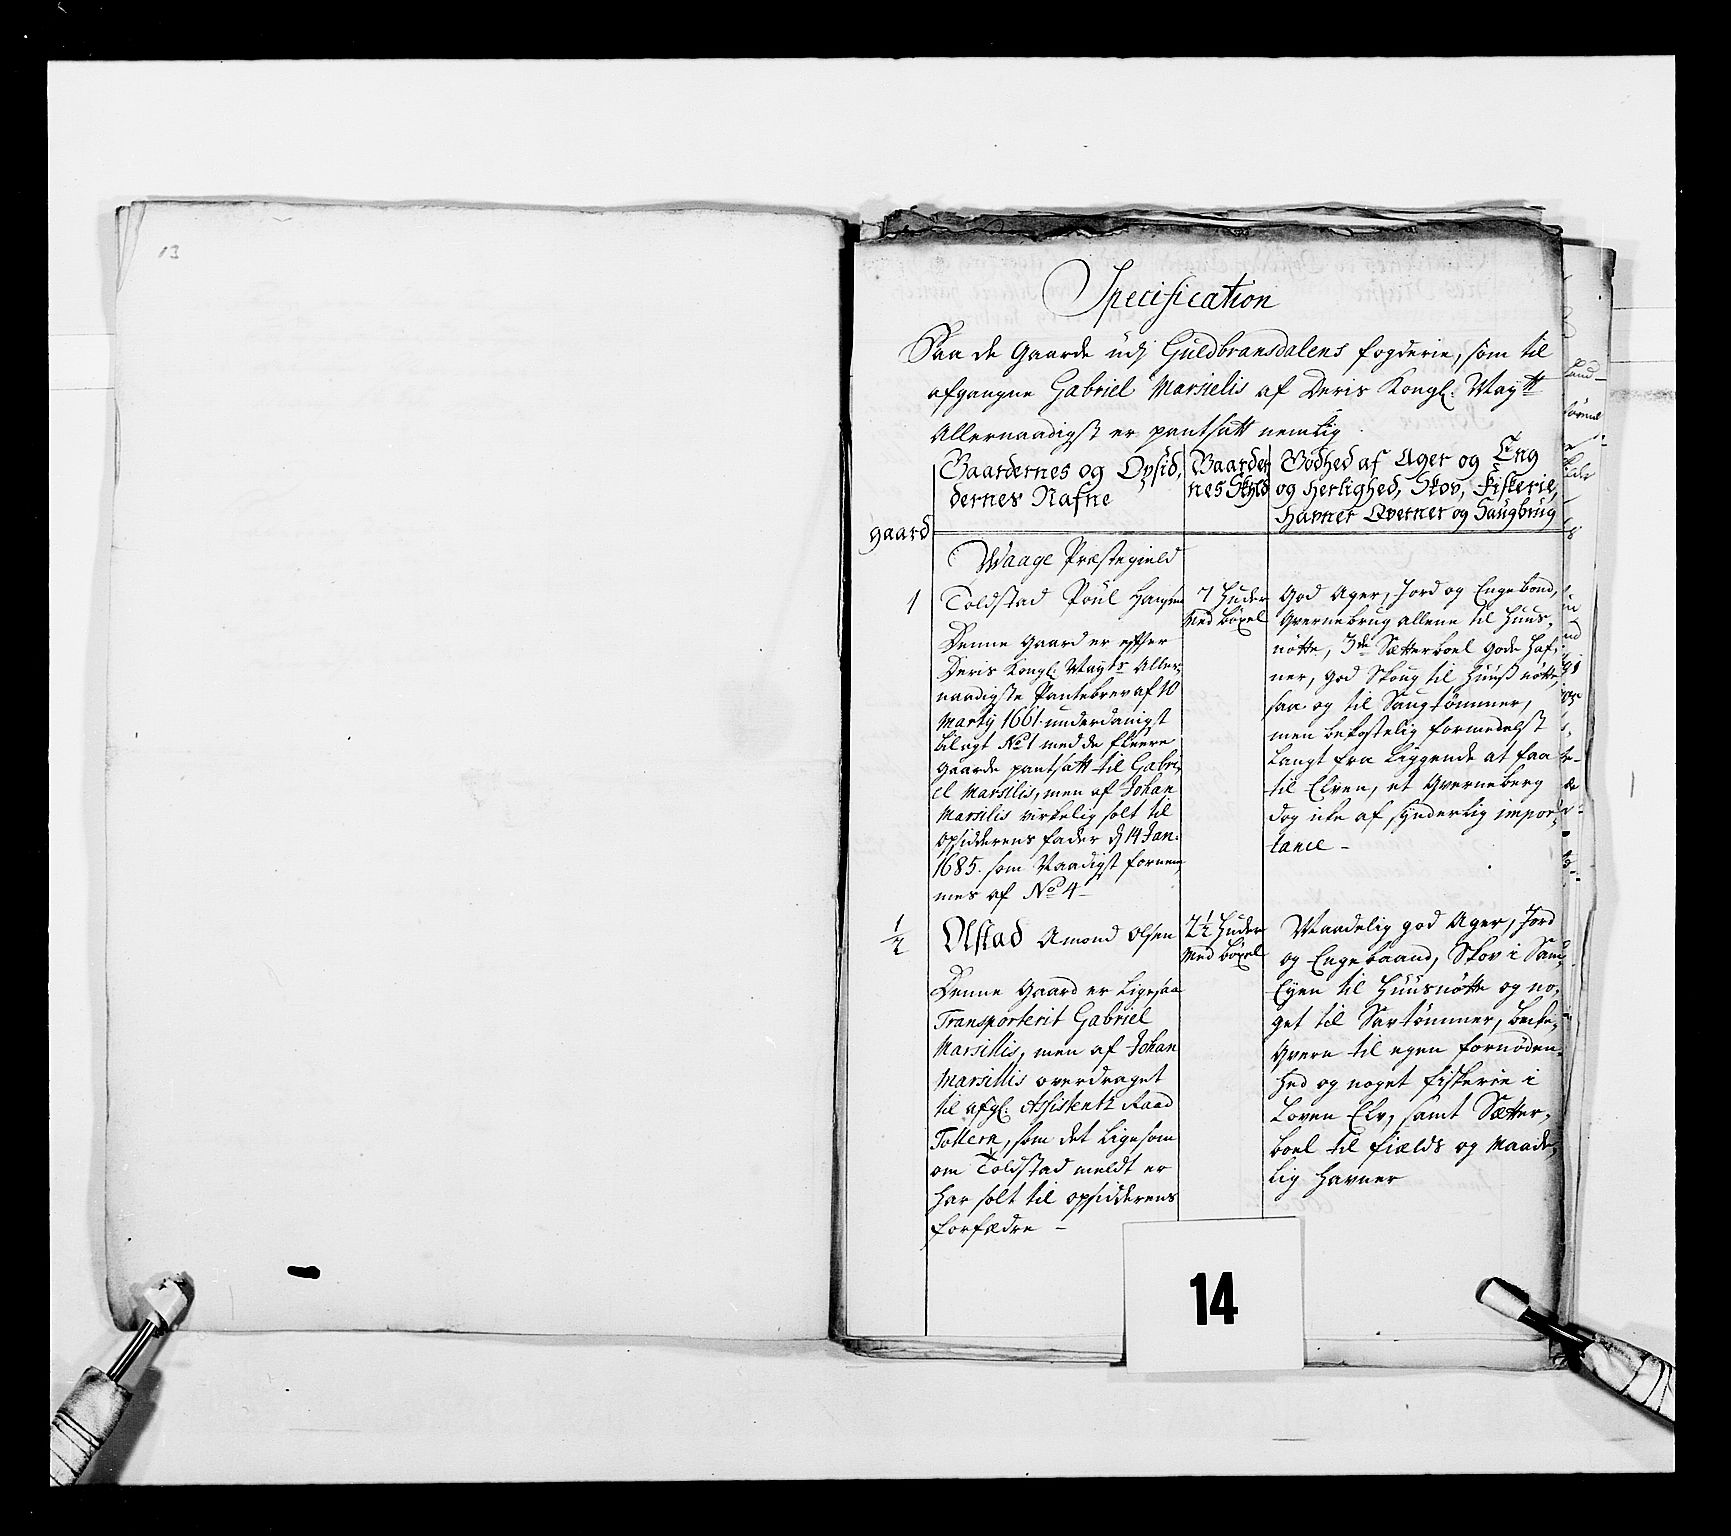 13
Specification
Paa de Gaarde udj Guldbransdalens fogderie, som til
afgangne Gabriel Marselis af Deris Kongl. Maytt
Allernaadigst er pantsatt nemlig
Gaardernes og Opsid,
dernes Nafne
Gaarder
nes Skyld
Godhed af Ager og Eng
og Herlighed, Skov, Fiskerie,
Havner Qverner og Saugbrug
gaard
Waage Præstegield
1
Toldstad Poul Hansen
Denne Gaard er effter
Deris Kongl. Mayts Aller-
naadigste Pantebrev af 10
Marty 1661 underdanigst
bilagt No 1 med de fleere
Gaarde pantsatt til Gabri-
el Marsilis, men af Johan
Marsilis virkelig solt til
Opsidderens fader d 14 Jan.
1685. som Naadigst fornem-
mes af No 4 -
7 Huder
Med böxel
God Ager, Jord og Engebond,
Qvernebrug allene til Huus-
nötte, 3de Sætterboel gode Haf-
ner, god Skoug til Huuß nötte,
saa og til Saugtömmer,
men bekostelig formedelst
Langt fra Liggende at faa
til Elven, et Qverneberg
dog icke af synderlig impor-
tance -
1/2
Olstad Amond Olsen
Denne Gaard er Ligesaa
Transporterit Gabriel
Marsillis, men af Johan
Marsillis overdraget
til afgl. Assistentz Raad
Tollera, som det Ligesom
om Toldstad meldt er
har solt til opsidderens
forfædre -
2 1/2 Huder
Med böxel
Maadelig god Ager, Jord
og Engebaand, Skov i Sam-
Eyen til Huusnötte og no-
get til Sartömmer, becke-
Qvern til egen fornöden-
hed og noget fiskerie i
Loven Elv, samt Sætter-
boel til fields og Maade-
lig Havner
14